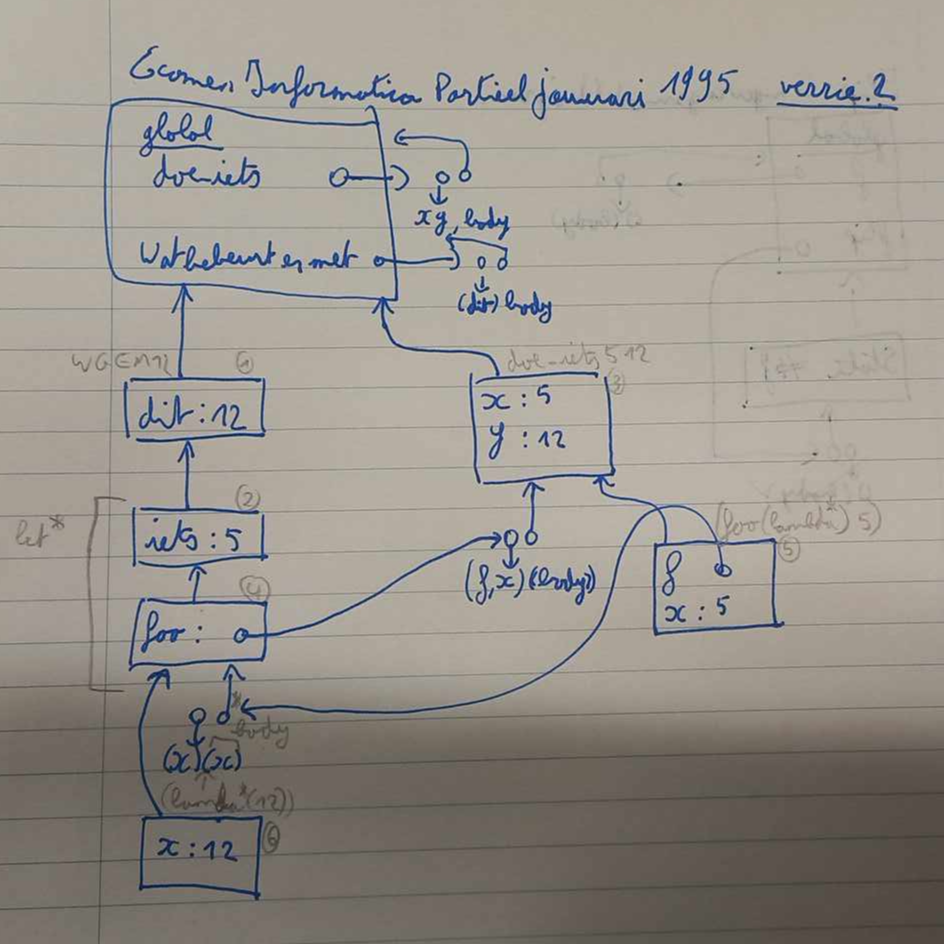 Examen Informatica Partieel januari 1995 versie 2
global
doe-iets
x y, body
Watgebeurt er met
(dit) body
WGEM 12 ①
doe-iets 5 12
③
dit : 12
x : 5
y : 12
②
let*
iets : 5
(foo (lambda*) 5)
⑤
④
(f, x) (body)
f
x : 5
foo :
*
body
(x) (x)
(lambda* (12))
x : 12
⑥